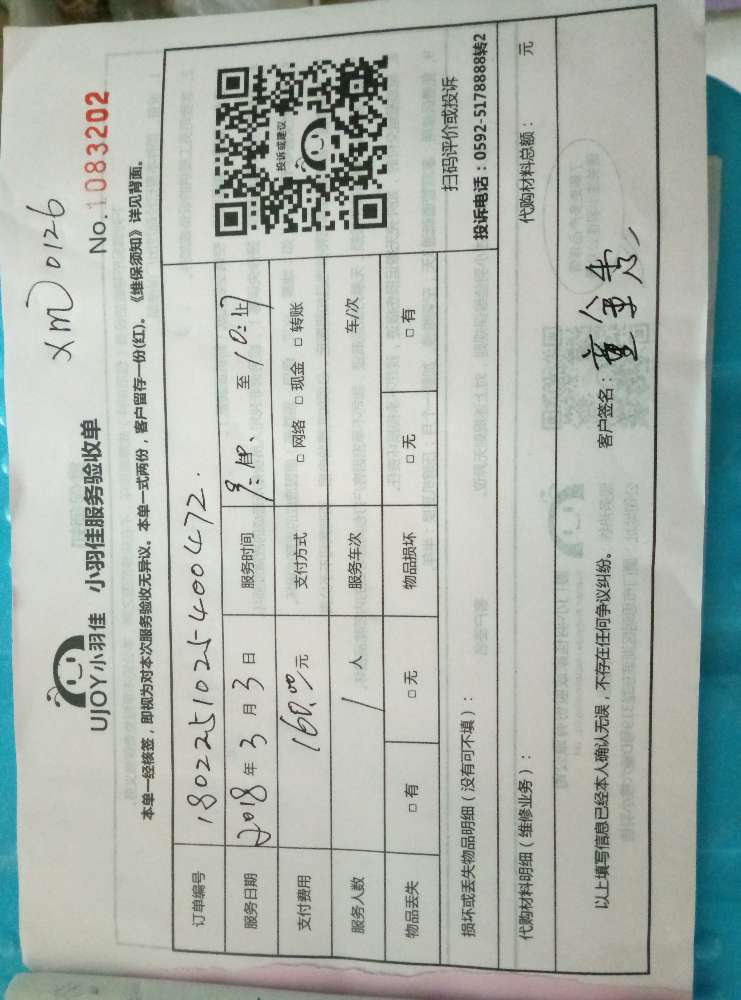 XM 0126
UJOY小羽佳 小羽佳服务验收单
No.1083202
本单一经核签，即视为对本次服务验收无异议。本单一式两份，客户留存一份(红)。《维保须知》详见背面。
订单编号 180225102540047 2.
服务日期 2018年3月3日 服务时间 至 止
支付费用 160.00元 支付方式 □ 网络 □ 现金 □ 转账
服务人数 1 人 服务车次 车/次
物品丢失 □ 有 □ 无 物品损坏 □ 无 □ 有
投诉或建议
扫码评价或投诉
投诉电话：0592-5178888转2
损坏或丢失物品明细（没有可不填）：
代购材料明细（维修业务）： 代购材料总额： 元
以上填写信息已经本人确认无误，不存在任何争议纠纷。 客户签名：董金秀